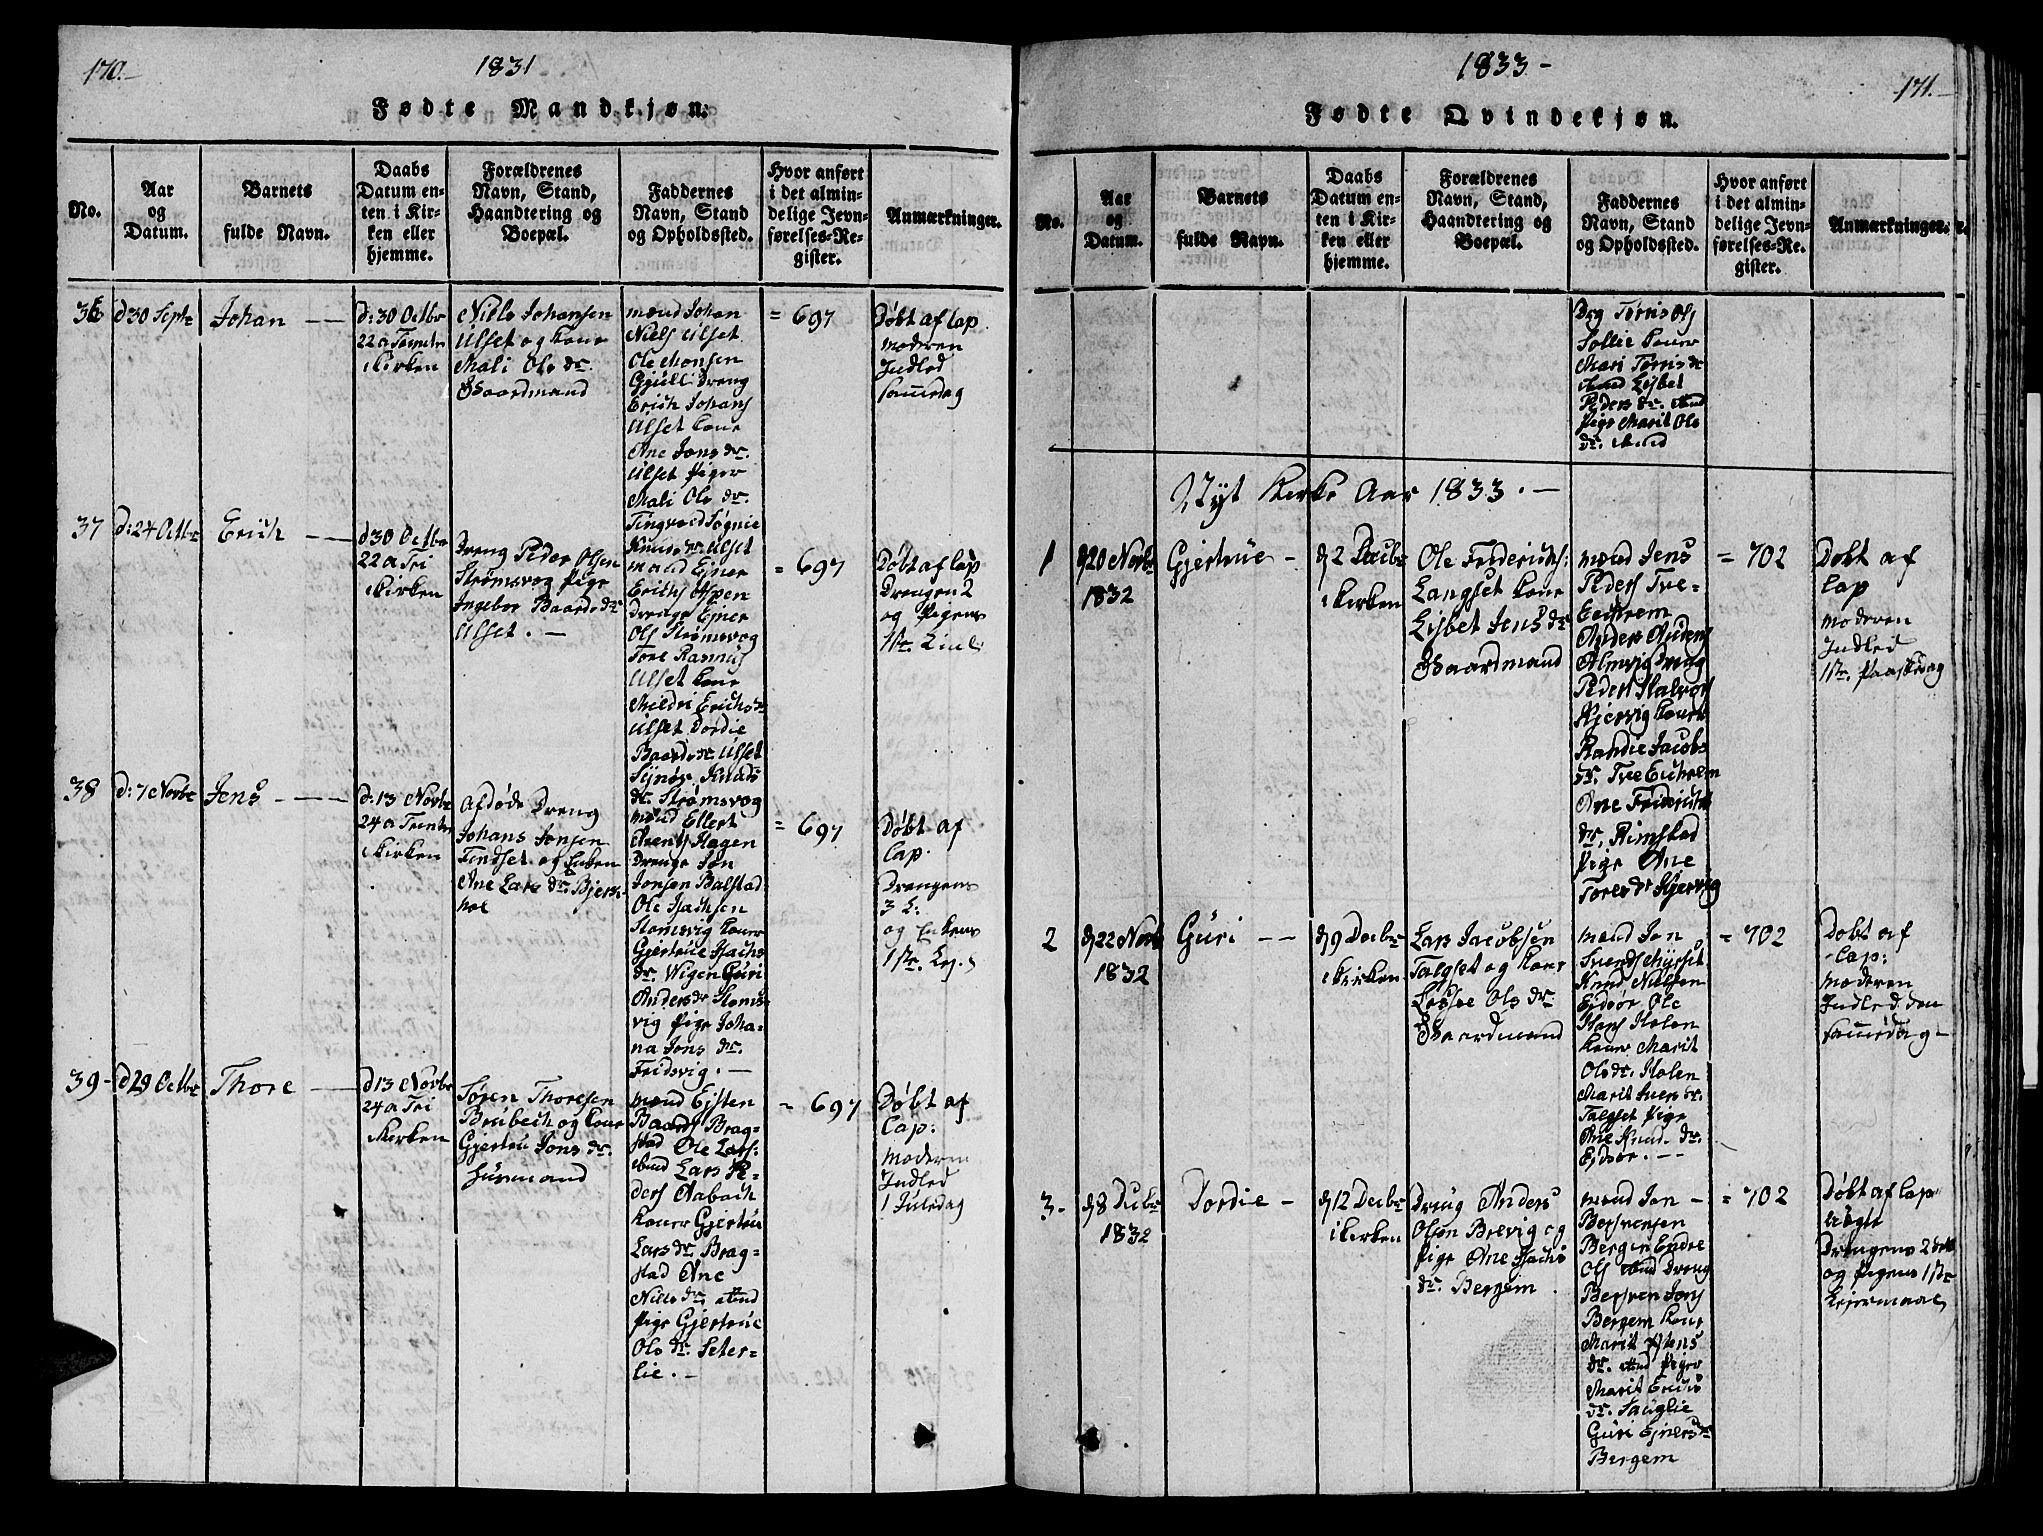 170.
1831
Fødte Mandkjøn.
No.
Aar
og
Datum.
Barnets
fulde Navn.
Daabs
Datum en-
ten i Kir-
ken eller
hjemme.
Forældrenes
Navn, Stand,
Haandtering og
Boepæl.
Faddernes
Navn, Stand
og Opholdssted.
Hvor anført
i det almin-
delige Jevn-
førelses-Re-
gister.
Anmærkninger.
36
d 30 Septr
Johan
d: 30 Octbr
22 a Trinitr
i Kirken
Niels Johansen
Ulset og Kone
Mali Ols dr.
Gaardmand
mænd Johan
Niels Ulset
Ole Monsen
Gjull Dreng
Erich Johans
Ulset Kone
Ane Jons dr.
Ulset Piger
Mali Ols dr.
Tingvold
Knuds dr Ulset
= 697
Døbt af Cap.
moderen
Indled
samedag
37
d: 24 Octbr
Erich
d 30 Octbr
22 a Tri
i Kirken
Dreng Peder Olsen
Strømsvog Pige
Ingebor Baards dr
Ulset.
mænd Ejner
Erichs Aspen
Drenge Ejner
Ols Strømsvog
Tore Rasmus
Ulset Kone
Mildri Erichs dr
Ulset Dordie
Baards dr Ulset
Sijnør Knuds
dr. Strømsvog
= 697
Døbt af Cap
Drengen 2
og Pigens
1ste
38
d: 7 Novbr
Jens
d: 13 Novbr
24 a Trinitr
i Kirken
afdøde Dreng
Johans Jensen
og Enken
Ane Lars dr. Bjerk-
hoe
mænd Ellert
Arents Hagen
Drenge Jøn
Jonsen Balstad
Ole Isachsen
Stomsvig Koner
Gjertrue Isachs
dr. Wigen Guri
Anders dr Stoms-
vig Pige Joha-
na Jons dr.
Fridsvig.
= 697
Døbt af
Cap.
Drengens
3 L:
og Enkens
1ste Lej.
39
d 29 Octbr
Thore
d 13 Novbr
24 a Tri
i Kirken
Søren Thoresen
Brubech og Kone
Gjertru Jons dr.
Husmand
mænd Ejsten
Baards Brag-
stad Ole Lars:
ibmd Lars Pe-
ders Aabach
Koner Gjertru
Lars dr. Brag-
stad Ane
Niels dr. ibmd
Pige Gjertrue
Ols dr. Seter-
lie.
= 697
Døbt af
Cap:
moderen
Indled
1 Juledag
1833
171.
Fødte Qvindekjøn.
No.
Aar
og
Datum.
Barnets
fulde Navn.
Daabs
Datum en-
ten i Kir-
ken eller
hjemme.
Forældrenes
Navn, Stand,
Haandtering og
Boepæl.
Faddernes
Navn, Stand
og Opholdssted.
Hvor anført
i det almin-
delige Jevn-
førelses-Re-
gister.
Anmærkninger.
Drg Tørris Ols
Sollie Koner
Mari Tørris dr
ibmd Lisbet
Peders dr. ibmd
Pige Marit Ols
dr. ibmd
Nyt Kirke Aar 1833.
1
d 20 Novbr
1832
Gjertrue
d 2 Decbr
i Kirken
Ole Friderichs:
Langset Kone
Lisbet Jens dr
Gaardmand
mænd Jens
Peders Tve-
Eechrem
Anders Anders
Almvig Dreng
Peder Halvors
Skjervig Koner
Randie Jacobs
dr. Tve Eechrem
Ane Friderichs
dr. Rimstad
Pige Ane
Tores dr Skjervig
= 702
Døbt af
Cap
moderen
Indled
1ste Paaskedag
2
d 22 Novbr
1832
Guri
d 9 Decbr
i Kirken
Lars Jacobsen
Talgset og Kone
Ols dr
Gaardmand
mænd Jon
Svends Myrset
Knud Nielsen
Ejdsør Ole
Hans Holen
Koner Marit
Ols dr. Holen
Marit Ivers dr.
Talgset Pige
Ane Knud. dr.
Ejdsør.
= 702
Døbt af
Cap:
moderen
Indled: den
samedag
3
d 8 Decbr
1832
Dordie
d 12 Decbr
i Kirken
Dreng Anders
Olsen Brevig og
Pige Ane Isachs
dr. Bergem
mænd Jon
Bersvensen
Bergem Endre
Ols ibmd Dreng
Bersven Jons
Bergem Kone
Marit Istens
dr. ibmd Piger
Marit Erichs
dr. Sauglie
Guri Ejners dr
Bergem
= 702
Døbt af Cap
Uægte
Drengens 2det
og Pigens 1ste
Lejermaal